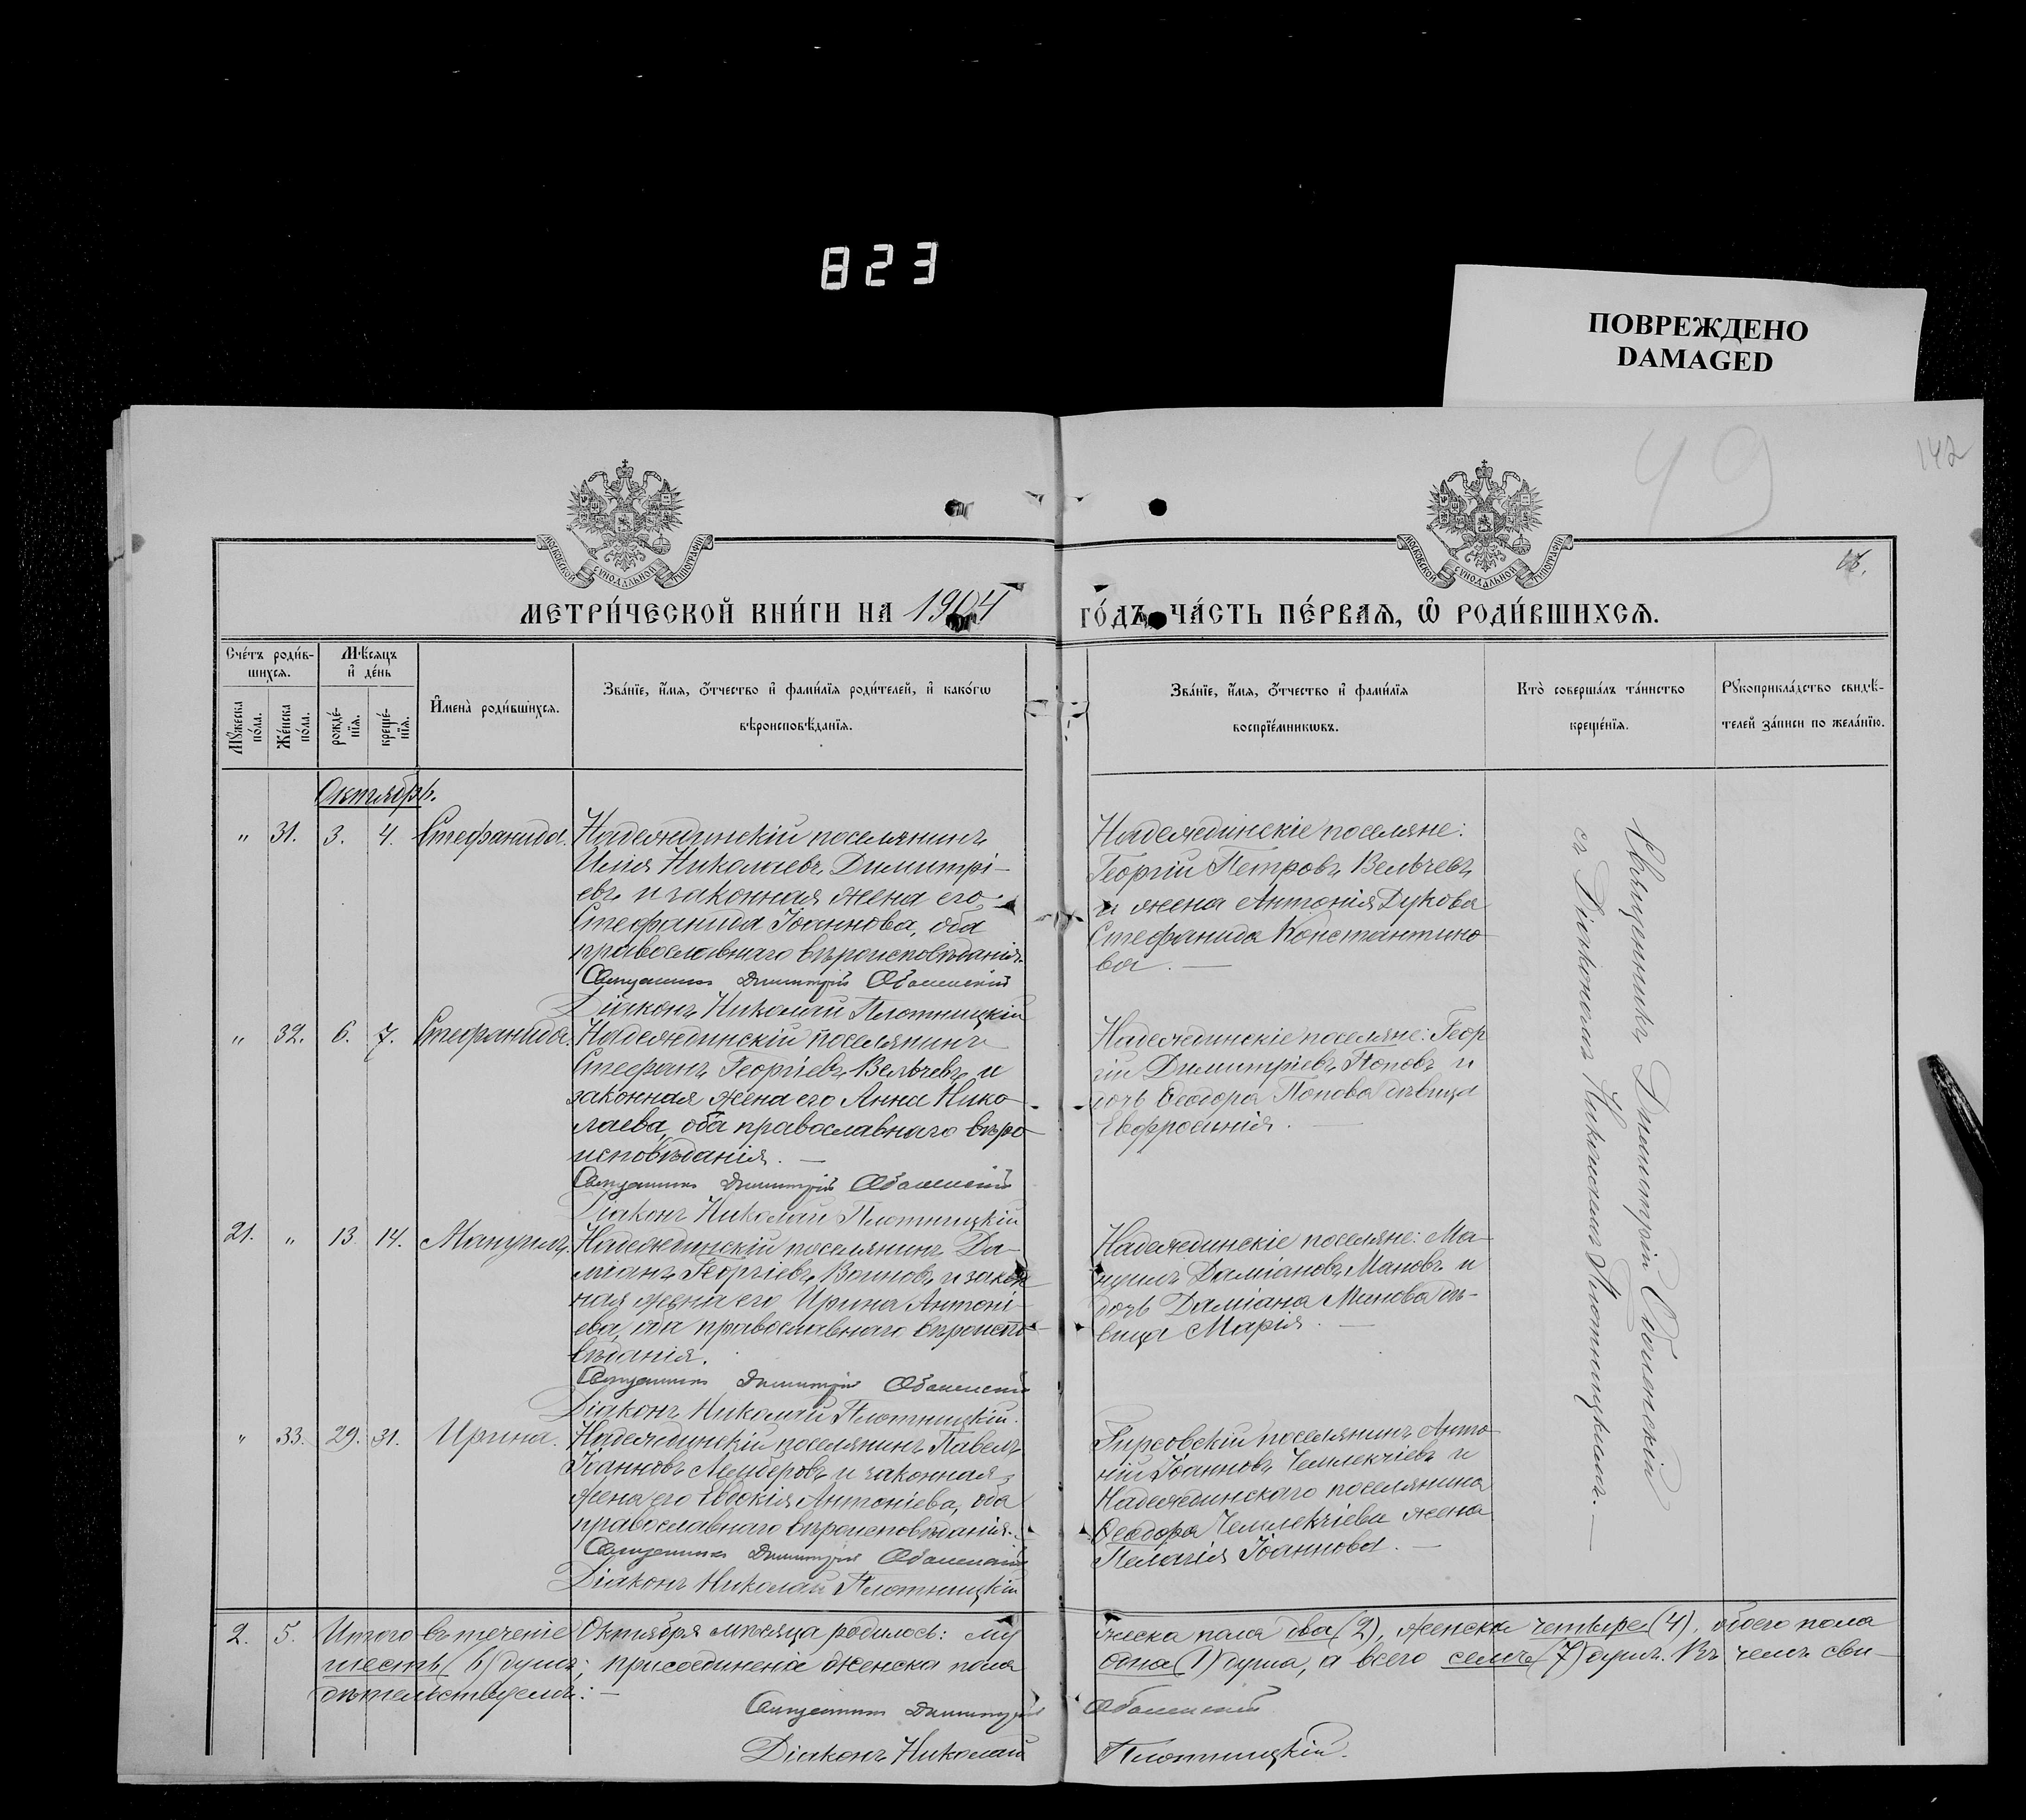 823
ПОВРЕЖДЕНО
DAMAGED
49
142
МОСКОВСКОЙ СѴНОДАЛЬНОЙ ТИПОГРАФІИ
МОСКОВСКОЙ СѴНОДАЛЬНОЙ ТИПОГРАФІИ
МЕТРИ́ЧЕСКОЙ КНИ́ГИ НА 1904 ГО́ДЪ, ЧА́СТЬ ПЕ́РВАѦ, Ѽ РОДИ́ВШИХСѦ.
Сче́тъ роди́в-
шихсѧ.
Мѣ́сѧцъ
и҆ де́нь
Мꙋ́жеска
по́ла.
Же́нска
по́ла.
рожде́-
нїѧ.
креще́-
нїѧ.
И҆мена̀ роди́вшихсѧ.
Зва́нїе, и҆́мѧ, ѻ҆́тчество и҆ фамилїѧ роди́телей, и҆ како́гѡ
вѣроисповѣ́данїѧ.
Зва́нїе, и҆́мѧ, ѻ҆́тчество и҆ фамилїѧ
воспрїе́мникѡвъ.
Кто̀ соверша́лъ та́инство
креще́нїѧ.
Рꙋкоприкла́дство свидѣ́-
телей за́писи по жела́нїю.
Октябрь.
" 31. 3. 4. Стефанида.
Надеждинскій поселянинъ
Илія Николаевъ Димитрі-
евъ и законная жена его
Стефанида Іоаннова, оба
православнаго вѣроисповѣданія.
Священникъ Димитрій Оболенскій
Діаконъ Николай Плотницкій
Надеждинскіе поселяне:
Георгій Петровъ Вельчевъ
и жена Антонія Дукова
Стефанида Константино-
ва. —
" 32. 6. 7. Стефанида.
Надеждинскій поселянинъ
Стефанъ Георгіевъ Вельчевъ и
законная жена его Анна Нико-
лаева, оба православнаго вѣро-
исповѣданія. —
Священникъ Димитрій Оболенскій
Діаконъ Николай Плотницкій
Надеждинскіе поселяне: Геор
гій Димитріевъ Поповъ и
дочь Ѳеодора Попова дѣвица
Евфросинія. —
21. " 13. 14. Мануилъ.
Надеждинскій поселянинъ Да-
міанъ Георгіевъ Воиновъ и закон
ная жена его Ирина Антоні-
ева, оба православнаго вѣроиспо-
вѣданія.
Священникъ Димитрій Оболенскій
Діаконъ Николай Плотницкій.
Надеждинскіе поселяне: Ма-
нуилъ Даміановъ Мановъ и
дочь Даміана Манова дѣ-
вица Марія. —
" 33. 29. 31. Ирина.
Надеждинскій поселянинъ Павелъ
Іоанновъ Лемберовъ и законная
жена его Евдокія Антоніева, оба
православнаго вѣроисповѣданія.
Священникъ Димитрій Оболенскій
Діаконъ Николай Плотницкій
Гирсовскій поселянинъ Анто-
ній Іоанновъ Чемлекчіевъ и
Надеждинскаго поселянина
Ѳеодора Чемлекчіева жена
Пелагія Іоаннова. —
Священникъ Димитрій Оболенскій
съ Діакономъ Николаемъ Плотницкимъ. —
2. 5. Итого въ теченіе Октября мѣсяца родилось: му
жеска пола два (2), женска четыре (4), обоего пола
шесть (6) душъ; присоединена женска пола
одна (1) душа, а всего семь (7) душъ. Въ чемъ сви-
дѣтельствуемъ: —
Священникъ Димитрій Оболенскій
Діаконъ Николай Плотницкій.